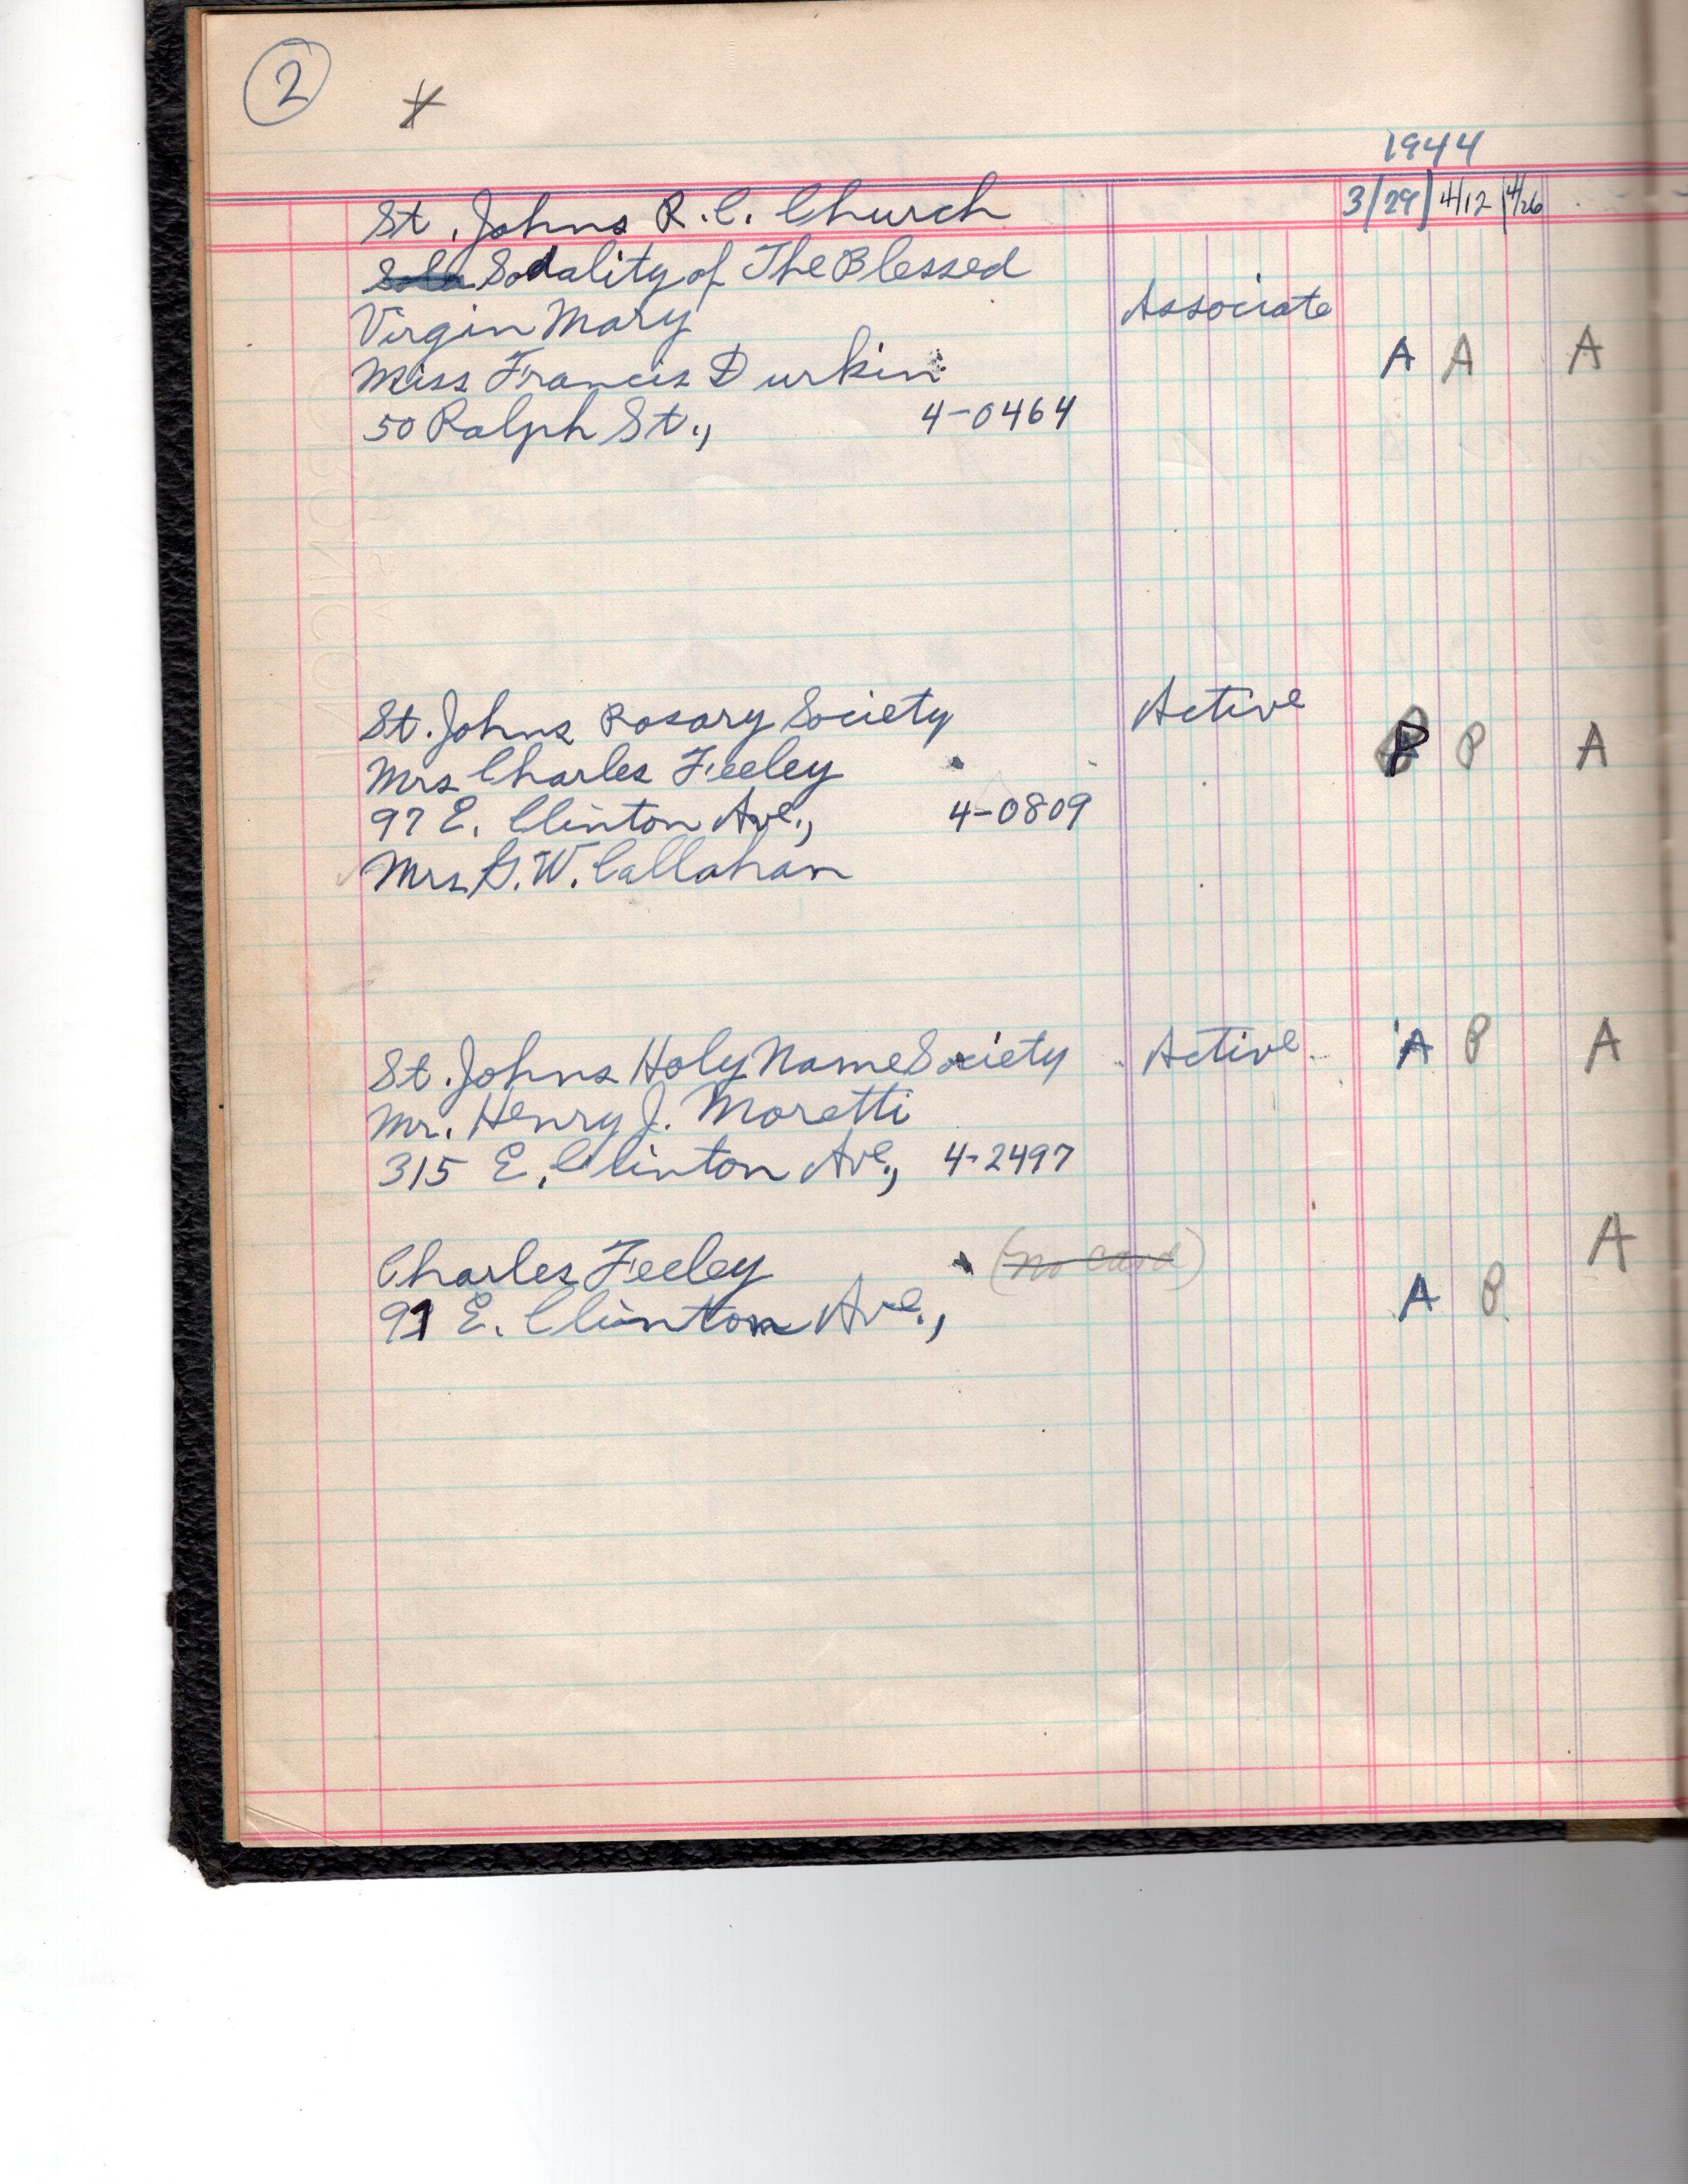 2
x
1944
St. Johns R. C. Church 3/29 4/12 4/26
Sodality of The Blessed
Virgin Mary Associate
Miss Francis Durkin A A A
50 Ralph St., 4-0464
St. Johns Rosary Society Active
Mrs Charles Feeley P P A
97 E. Clinton Ave., 4-0809
Mrs G. W. Callahan
St. Johns Holy Name Society Active A P A
Mr. Henry J. Moretti
315 E. Clinton Ave., 4-2497
Charles Feeley (no card) A
91 E. Clinton Ave., A P